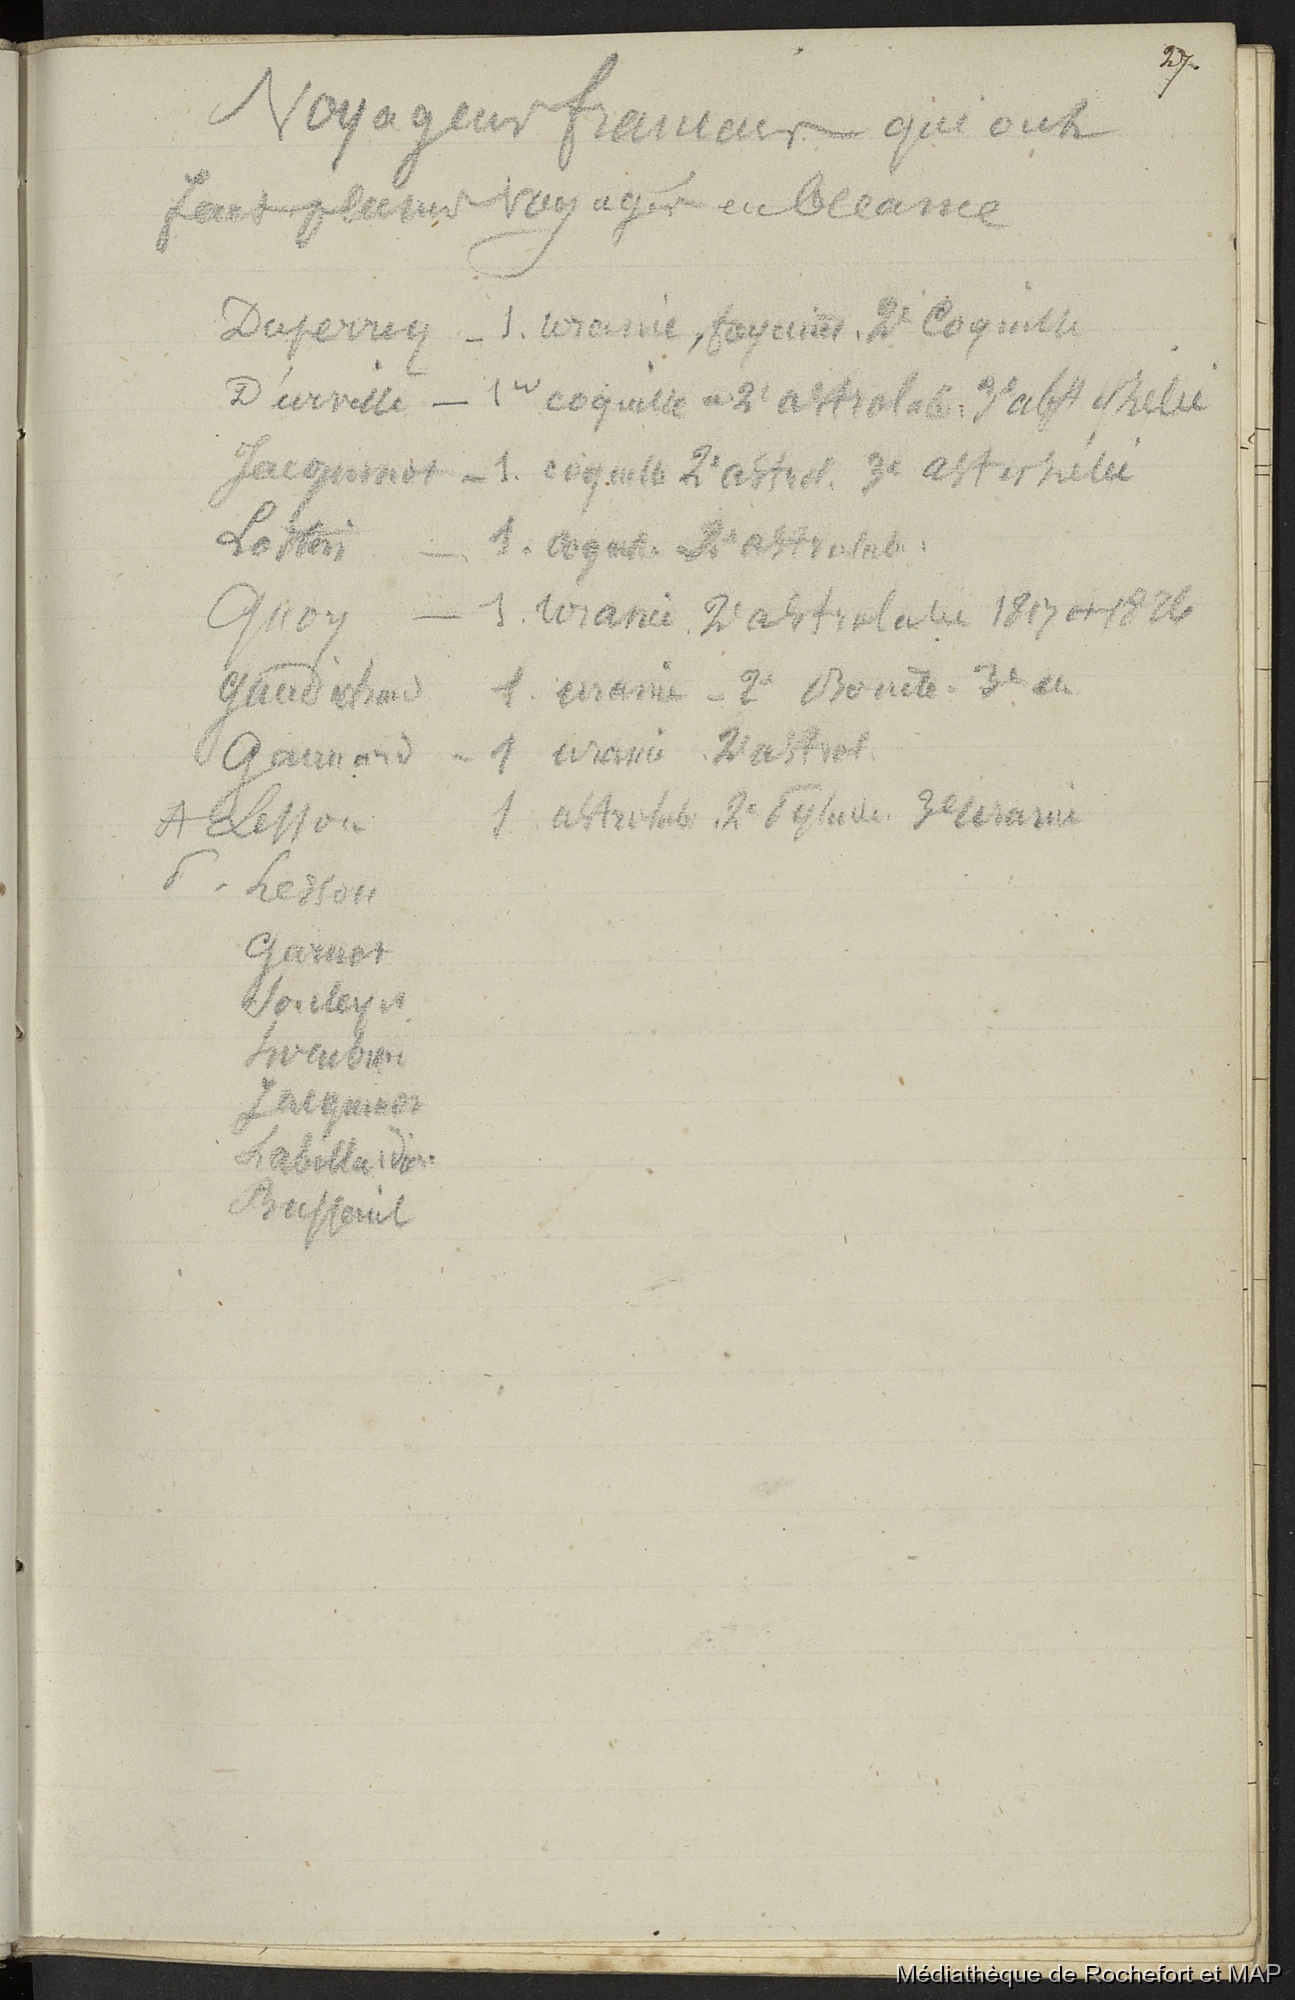 27.
Voyageurs français qui ont
fait plusieurs voyages en Oceanie
Duperrey – 1. uranie, 2e Coquille
D'urville – 1er coquille – 2e astrolabe. 3e ast et Zélée
Jacquinot – 1. coquille 2e astrol. 3e ast et zélée
Lottin – 1. coquil. – 2e astrolab.
Quoy – 1. Uranie. 2e astrolabe 1817 et 1826
Gaudichaud 1. uranie – 2e Bonite. 3e en
Gaimard – 1 uranie . 2e astrol.
A Lesson 1 astrolabe . 2e Pylade. 3e Uranie
P. Lesson
Garnot
Souleyet
Jacquinot
Labillardier.
Busseuil
Médiathèque de Rochefort et MAP